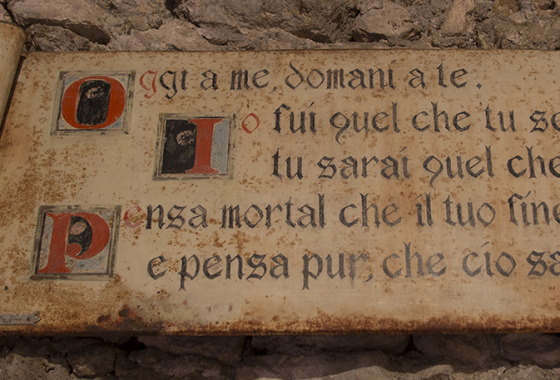 Oggi a me, domani a te.
Io fui quel che tu se
tu sarai quel che
Pensa mortal che il tuo fine
e pensa pur, che cio sa